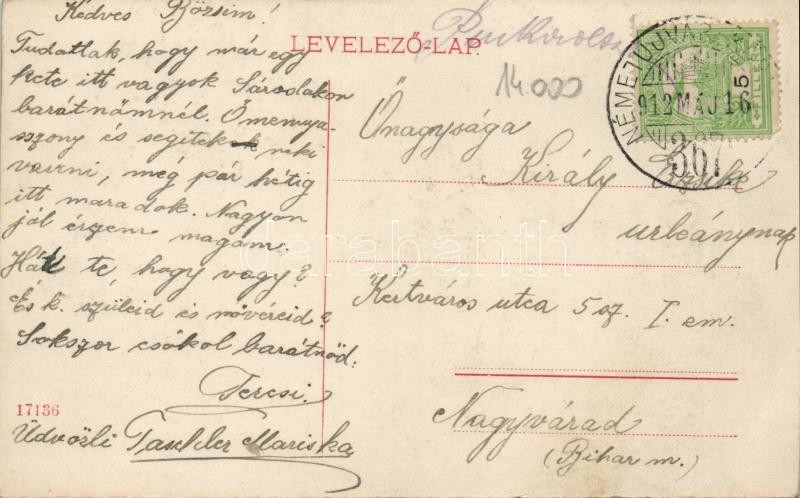 Kedves Bözsim!
Tudattak, hogy már egy
hete itt vagyok Sárodakon
barátnőmnél. Ő menya-
sszony és segitek neki
varrni, még pár hétig
itt maradok. Nagyon
jól érzem magam.
Hát te, hogy vagy?
És k. szüleid és nővéreid?
Sokszor csókol barátnőd:
Tercsi.
17136
Üdvözli Taschler Mariska
LEVELEZŐ-LAP.
14.000
NÉMETÚJVÁR
912 MÁJ 16
367
5
FILLÉR
Őnagysága
Király Erzsike
urleánynak
Kertváros utca 5 sz. I. em.
Nagyvárad
(Bihar m.)
darabanth